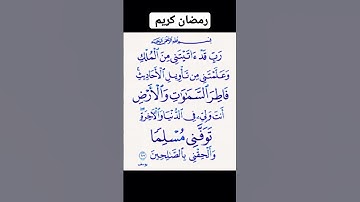 رمضان كريم
بسم الله الرحمن الرحيم
رَبِّ قَدْ ءَاتَيْتَنِي مِنَ ٱلْمُلْكِ
وَعَلَّمْتَنِي مِن تَأْوِيلِ ٱلْأَحَادِيثِ
فَاطِرَ ٱلسَّمَٰوَٰتِ وَٱلْأَرْضِ
أَنتَ وَلِيِّۦ فِي ٱلدُّنْيَا وَٱلْآخِرَةِ
تَوَفَّنِي مُسْلِمًا
وَأَلْحِقْنِي بِٱلصَّٰلِحِينَ